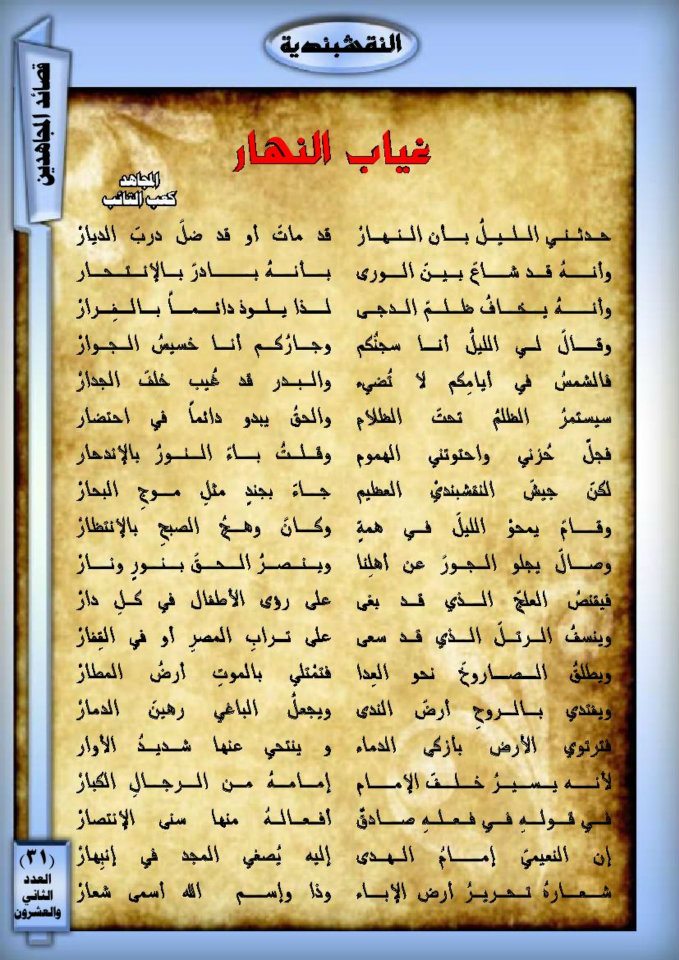 النقشبندية
قصائد المجاهدين
غياب النهار
المجاهد
كعب التائب
حدثني الليلُ بأن النهارْ قد ماتَ أو قد ضلَ دربَ الديارْ
وأنهُ قد شاعَ بينَ الورى بأنهُ بادرَ بالإنتحارْ
وأنهُ يخافُ ظلمَ الدجى لذا يلوذ دائماً بالفِرارْ
وقالَ لي الليلُ أنا سجنُكم وجارُكم أنا خسيسُ الجوارْ
فالشمسُ في أيامِكم لا تُضيء والبدر قد غُيب خلفَ الجدارْ
سيستمرُ الظلمُ تحتَ الظلام والحقُ يبدو دائماً في احتضار
فجلّ حُزني واحتوتني الهموم وقلتُ باءَ النورُ بالإندحار
لكنَ جيشَ النقشبنديْ العظيم جاءَ بجندٍ مثلِ موجِ البحارْ
وقامَ يمحوْ الليلَ في همةٍ وكانَ وهجُ الصبحِ بالإنتظارْ
وصالَ يجلو الجورَ عن أهلِنا وينصرُ الحقَ بنورٍ ونارْ
فيقنصُ العلجَ الذي قد بغى على رؤى الأطفال في كلِ دارْ
وينسفُ الرتلَ الذي قد سعى على ترابِ المصرِ أو في القِفارْ
ويطلقُ الصاروخَ نحو العِدا فتمْتلي بالموتِ أرضُ المطارْ
ويفتدي بالروحِ أرضَ الندى ويجعلُ الباغي رهينَ الدمارْ
فترتوي الأرض بأزكى الدماء و ينتحي عنها شديدُ الأوار
لأنه يسيرُ خلفَ الإمام إمامهُ من الرجالِ الكبارْ
في قولهِ في فعلهِ صادقٌ أفعالهُ منها سنى الإنتصارْ
إن النعيميَ إمامُ الهدى إليه يُصغي المجد في إنبِهارْ
شعارهُ تحريرُ أرضِ الإباء وذا وإسم الله أسمى شعارْ
(٣١)
العدد
الثاني
والعشرون